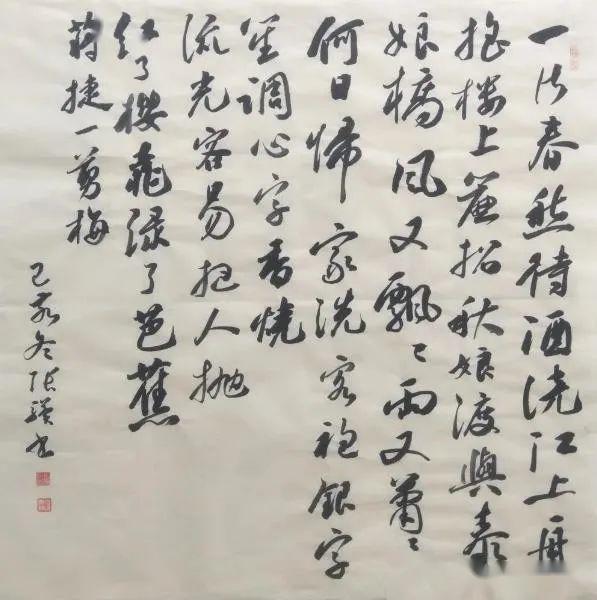 一片春愁待酒浇江上舟
摇楼上簾招秋娘渡與泰
娘橋风又飄〻雨又蕭〻
何日帰家洗客袍銀字
笙調心字香燒
流光容易把人抛
红了樱桃绿了芭蕉
蒋捷一剪梅
己亥冬张书